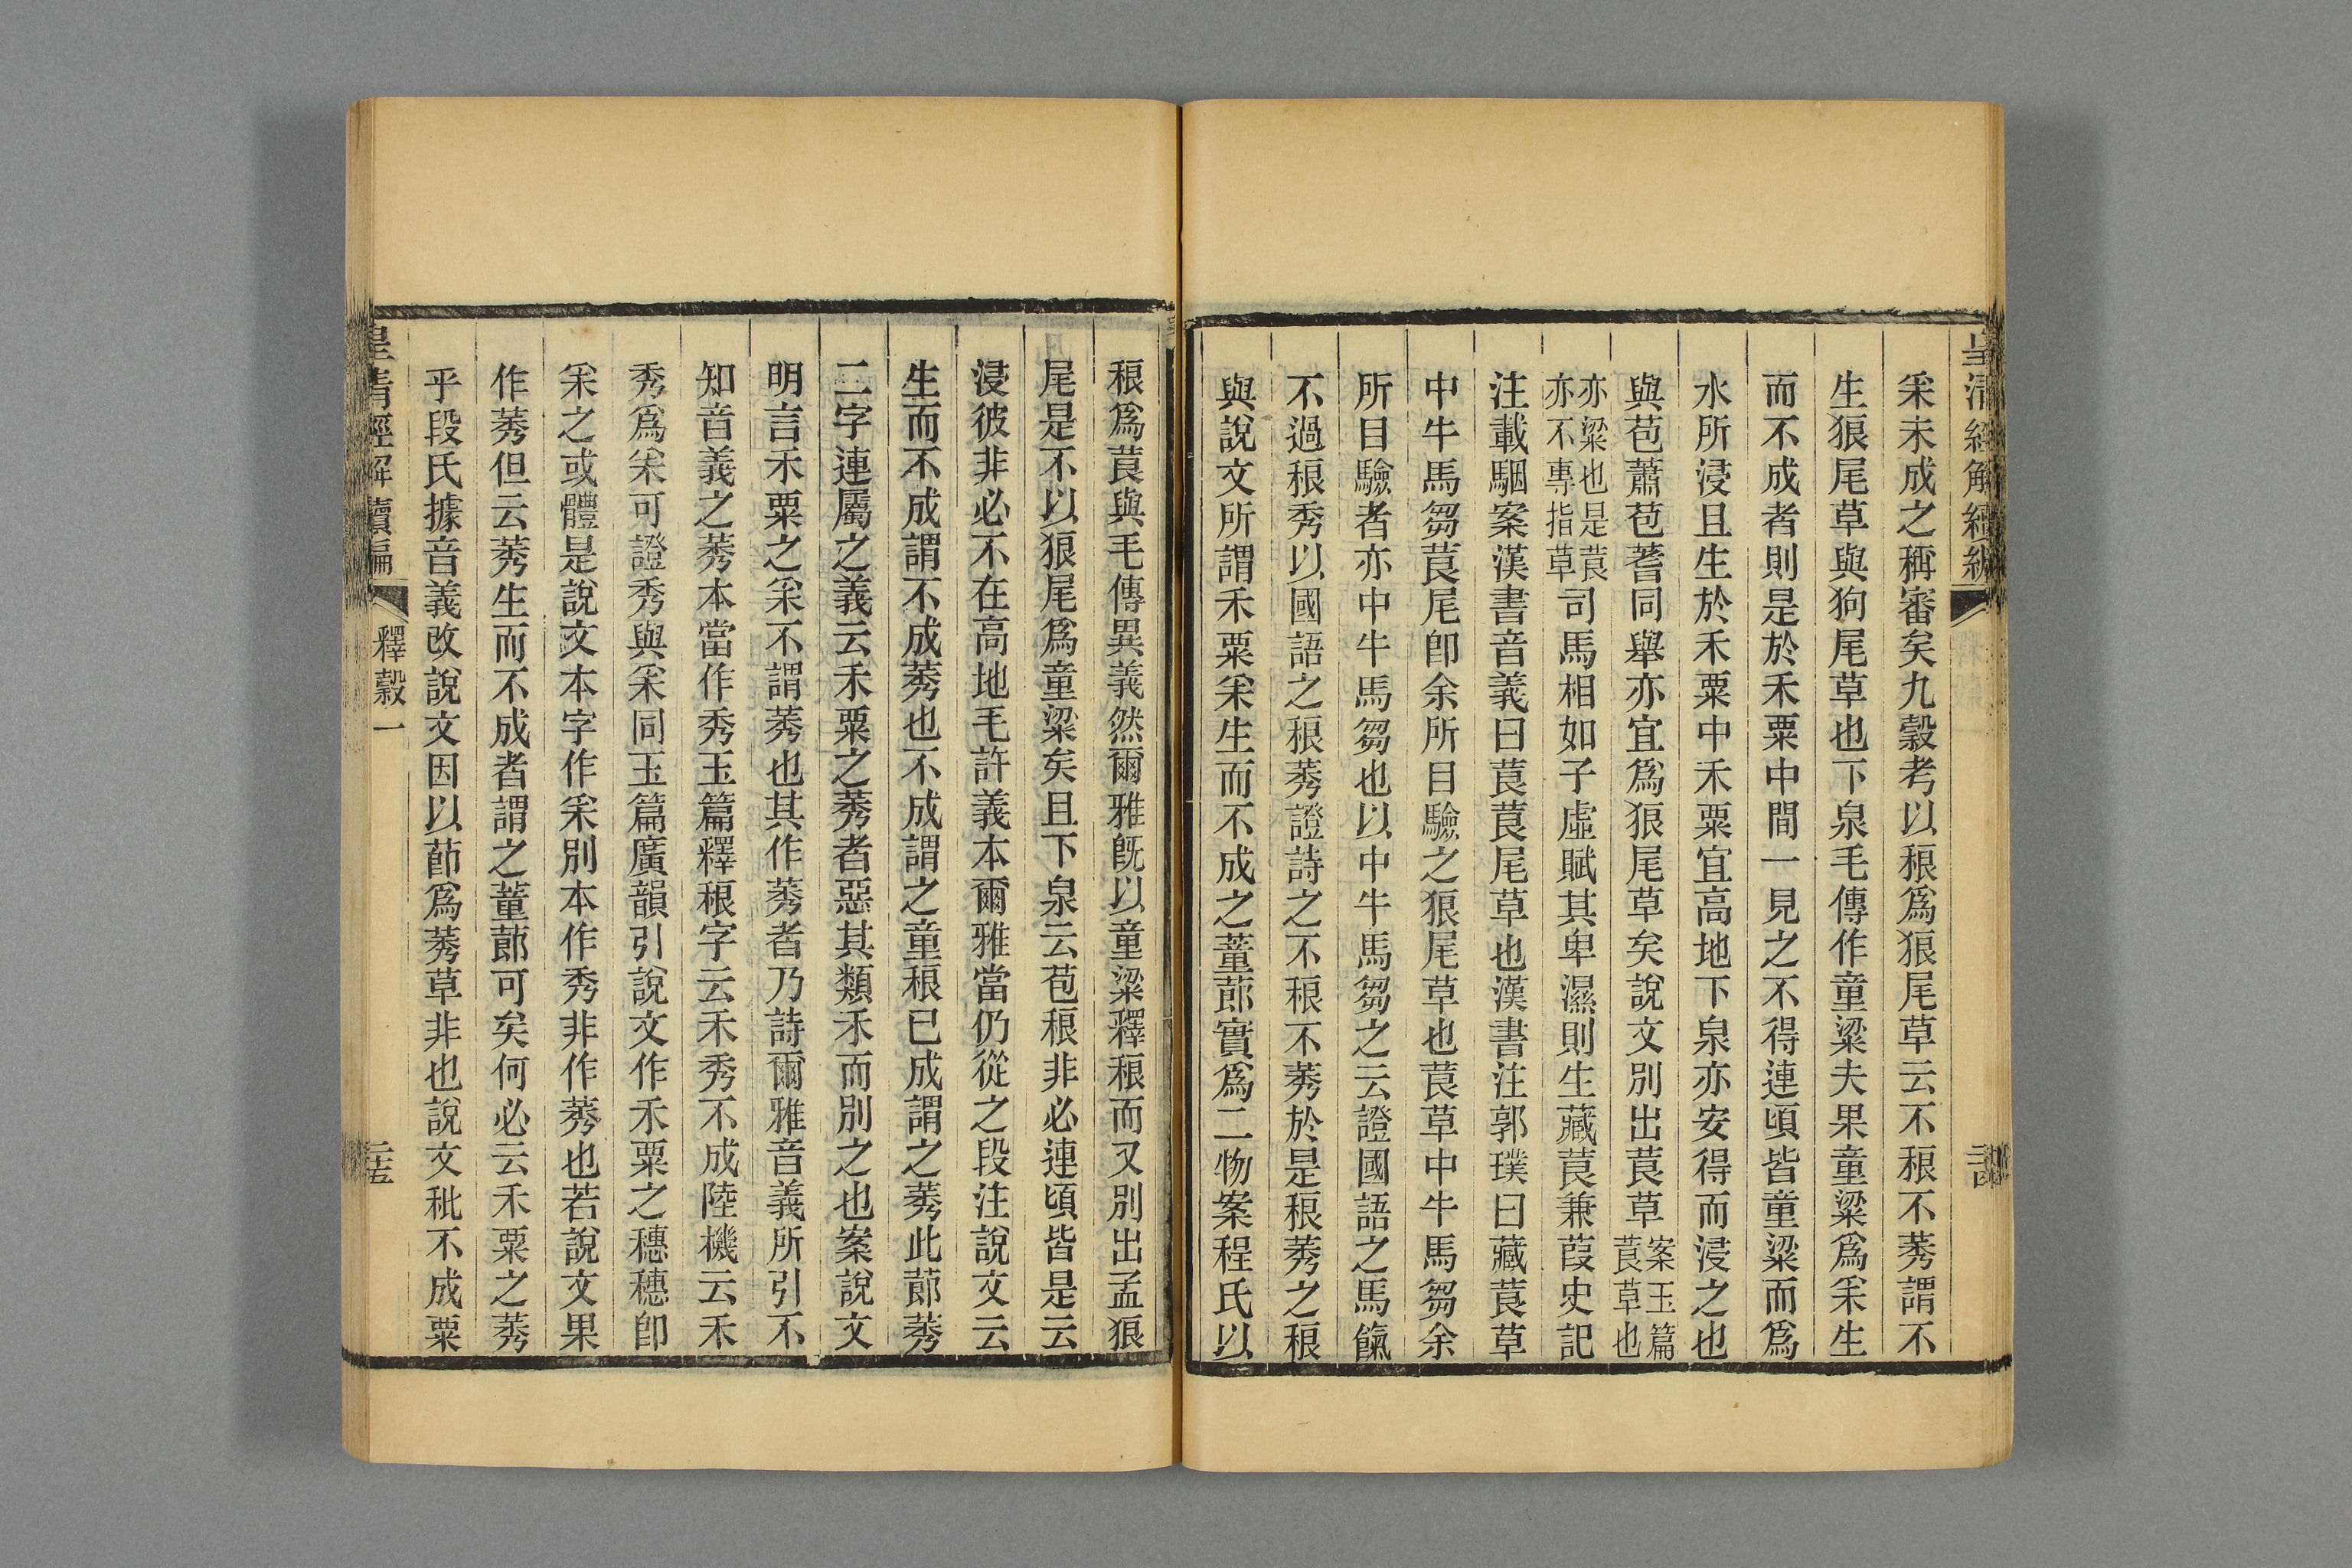 皇清經解續編
采未成之稱審矣九穀考以稂爲狼尾草云不稂不莠謂不
生狼尾草與狗尾草也下泉毛傳作童粱夫果童粱爲采生
而不成者則是於禾粟中間一見之不得連頃皆童粱而爲
水所浸且生於禾粟中禾粟宜高地下泉亦安得而浸之也
與苞蕭苞蓍同舉亦宜爲狼尾草矣說文別出莨草案玉篇莨草也
亦粱也是莨亦不專指草司馬相如子虛賦其卑濕則生藏莨兼葭史記
注載駰案漢書音義曰莨莨尾草也漢書注郭璞曰藏莨草
中牛馬芻莨尾卽余所目驗之狼尾草也莨草中牛馬芻余
所目驗者亦中牛馬芻也以中牛馬芻之云證國語之馬餼
不過稂秀以國語之稂莠證詩之不稂不莠於是稂莠之稂
與說文所謂禾粟采生而不成之蕫蓈實爲二物案程氏以
稂爲莨與毛傳異義然爾雅旣以童粱釋稂而又別出孟狼
尾是不以狼尾爲童粱矣且下泉云苞稂非必連頃皆是云
浸彼非必不在高地毛許義本爾雅當仍從之段注說文云
生而不成謂不成莠也不成謂之童稂已成謂之莠此蓈莠
二字連屬之義云禾粟之莠者惡其類禾而別之也案說文
明言禾粟之采不謂莠也其作莠者乃詩爾雅音義所引不
知音義之莠本當作秀玉篇釋稂字云禾秀不成陸機云禾
秀爲采可證秀與采同玉篇廣韻引說文作禾粟之穗穗卽
采之或體是說文本字作采別本作秀非作莠也若說文果
作莠但云莠生而不成者謂之蕫蓈可矣何必云禾粟之莠
乎段氏據音義改說文因以莭爲莠草非也說文秕不成粟
皇清經解續編
釋穀一